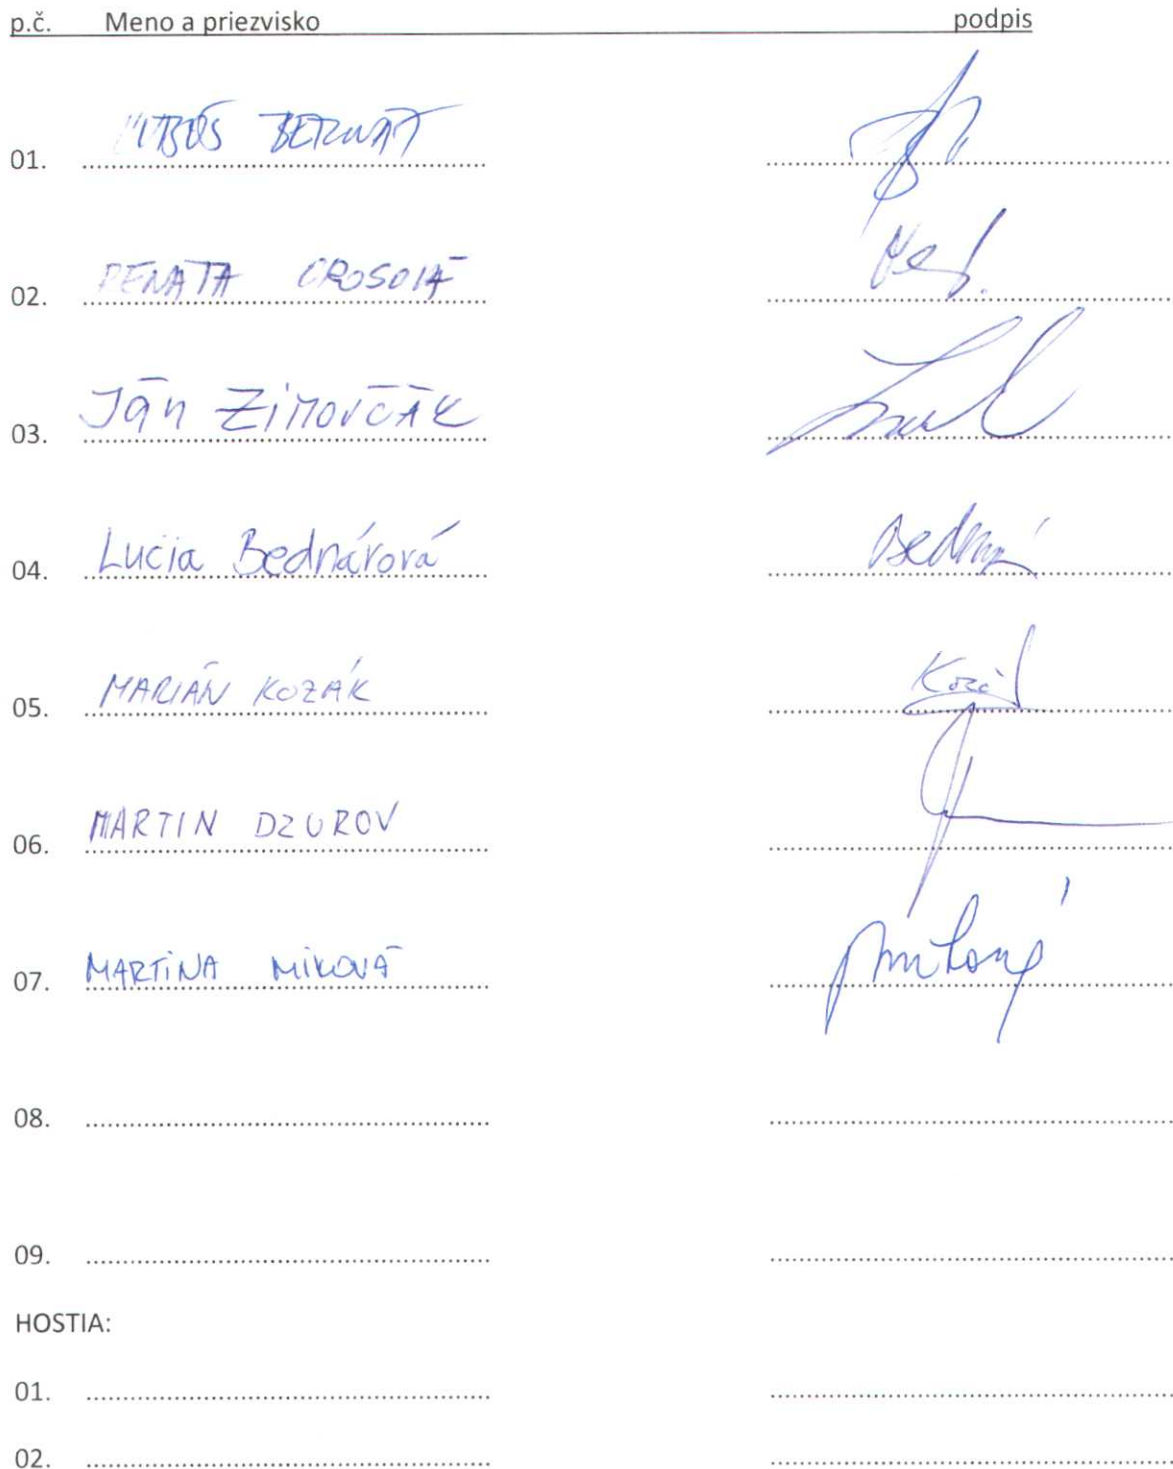 p.č. Meno a priezvisko podpis
01. ĽUBOŠ BERNÁT
02. RENATA OROSOVÁ
03. Ján ZIMOVČÁK
04. Lucia Bednárová
05. MARIÁN KOZÁK Kozá
06. MARTIN DZUROV
07. MARTINA MIKOVÁ
08.
09.
HOSTIA:
01.
02.